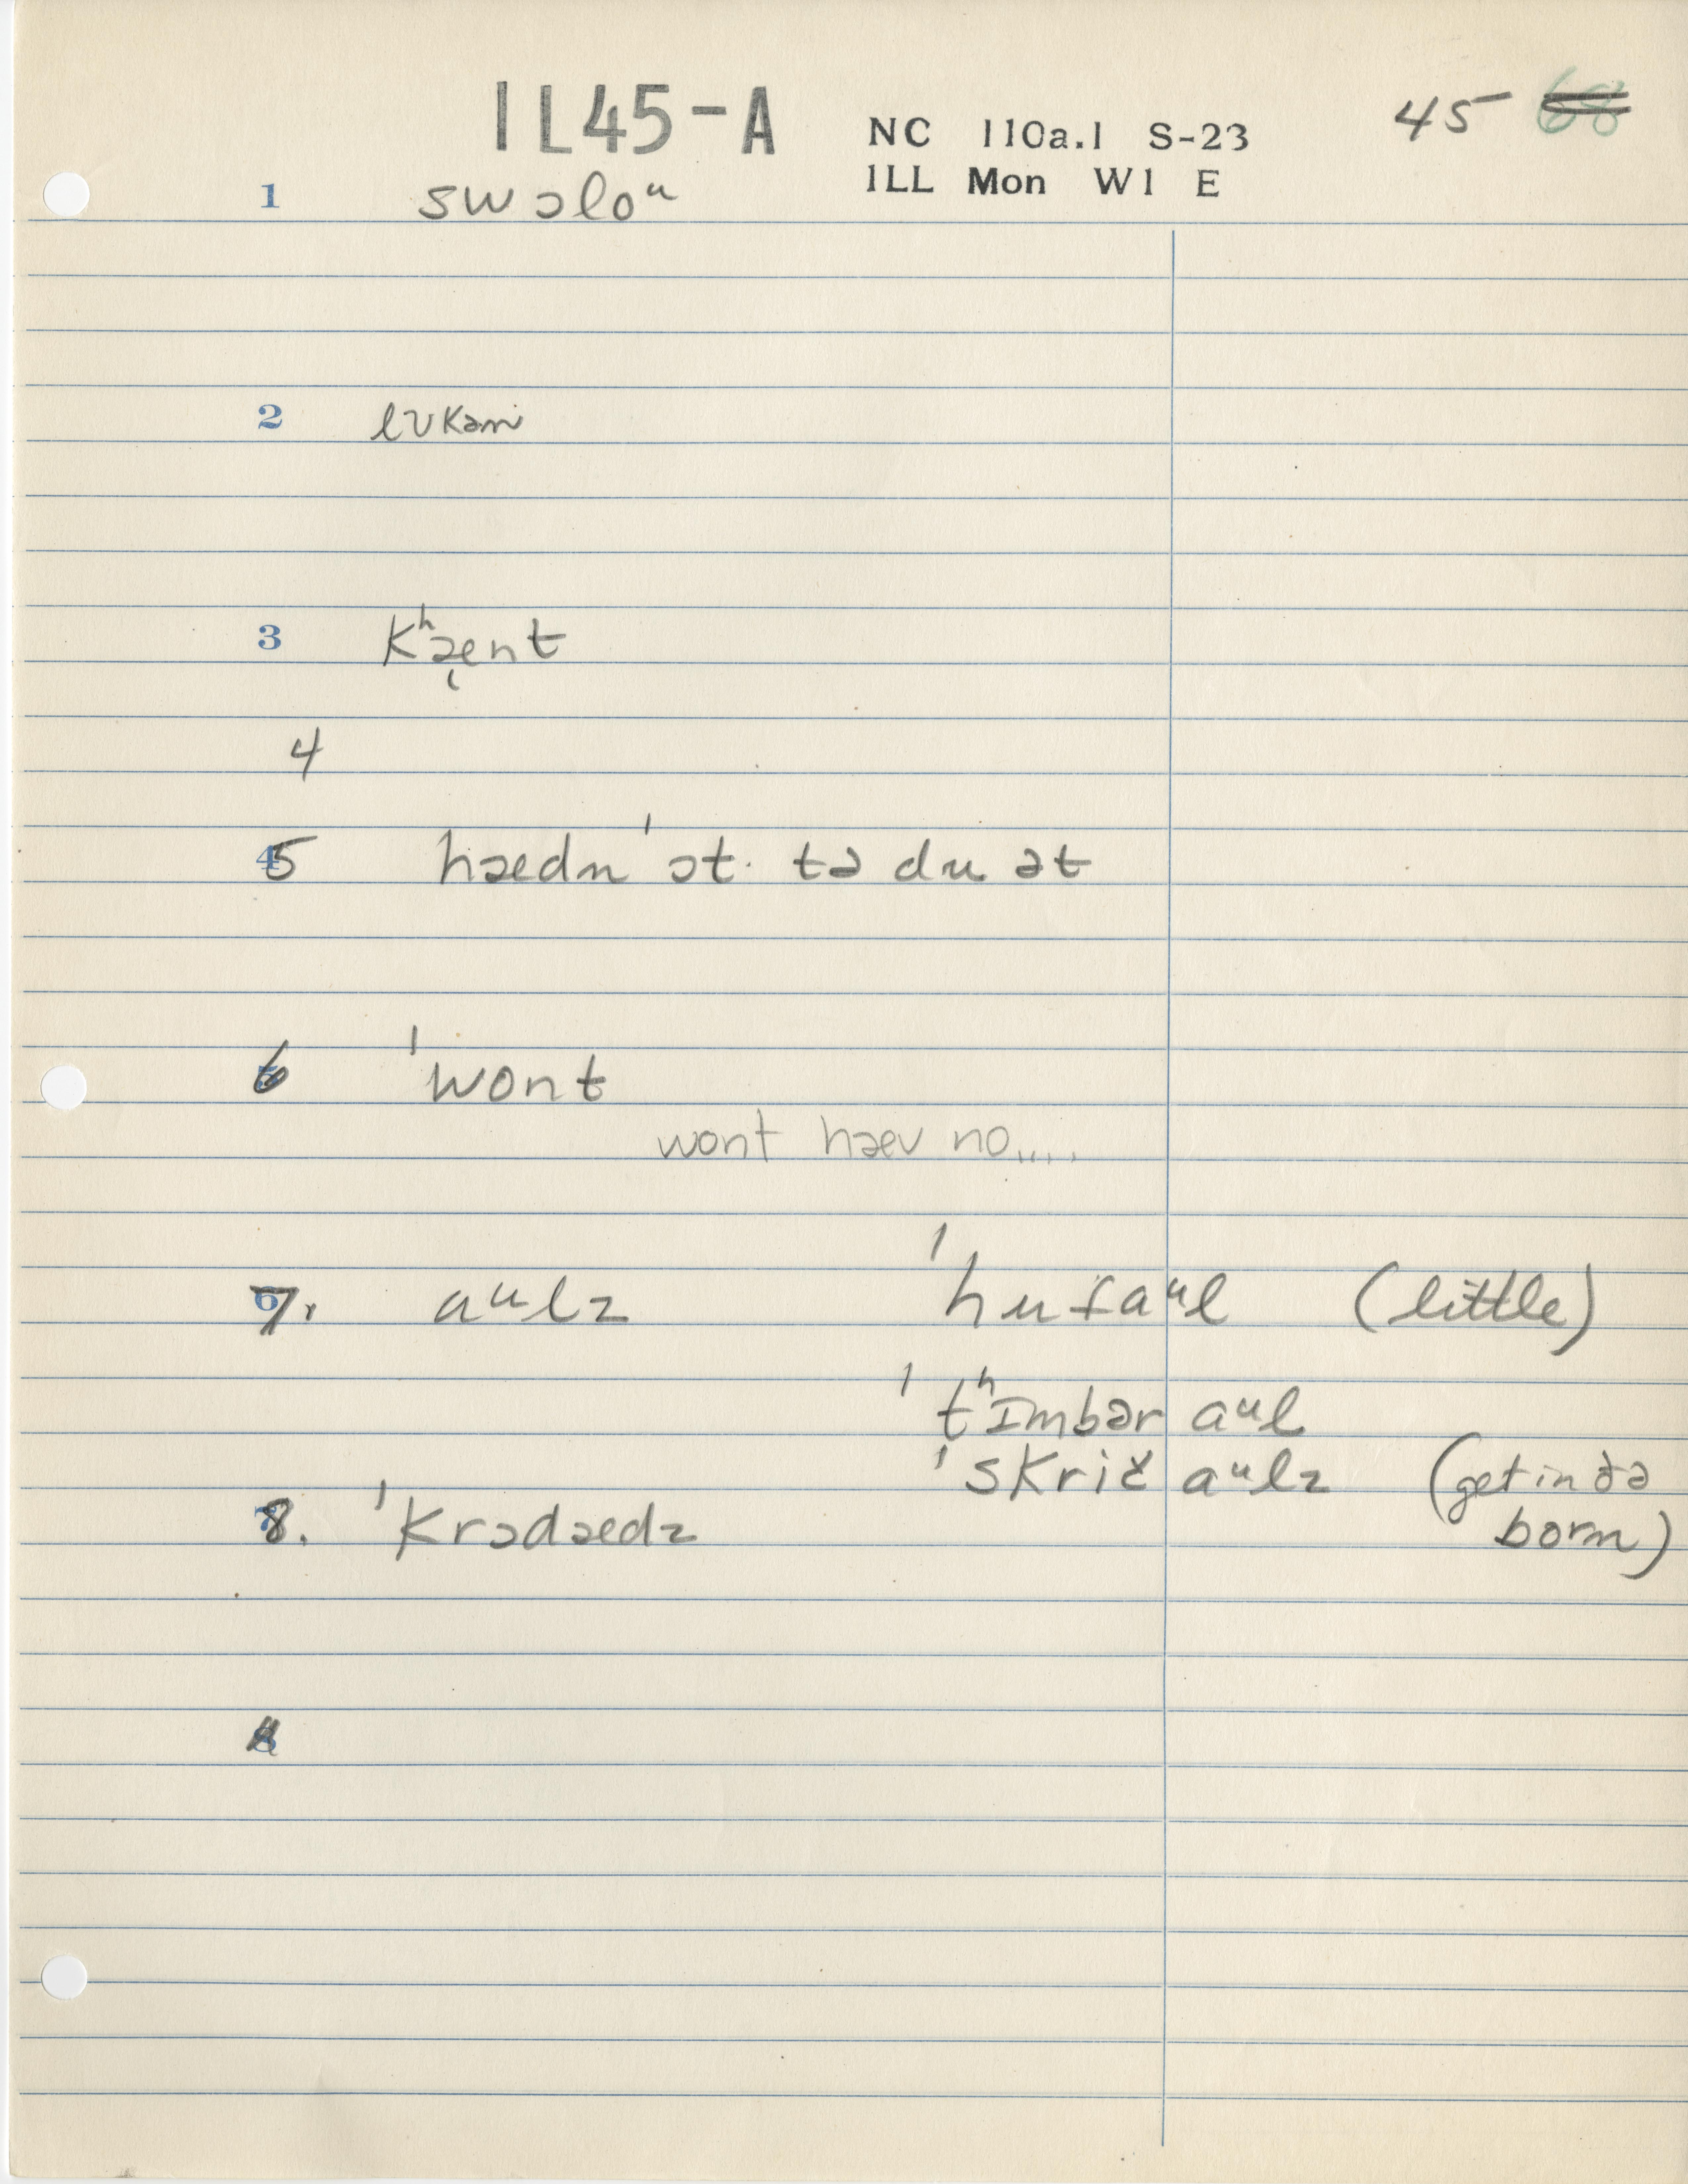 IL45-A
NC 110a.1 S-23 45 68
ILL Mon W1 E
1 swɔloᵘ
2 lʊkən
3 Kʰæ̨nt
4
5 hædn ˈɔt tə du ət
6 ˈwont
wont hæv no.....
7. aᵘlz ˈhufaᵘl (little)
ˈtʰɪmbər aᵘl
ˈskrič aᵘlz (get in ðə
8. ˈKrɔdædz born)
8